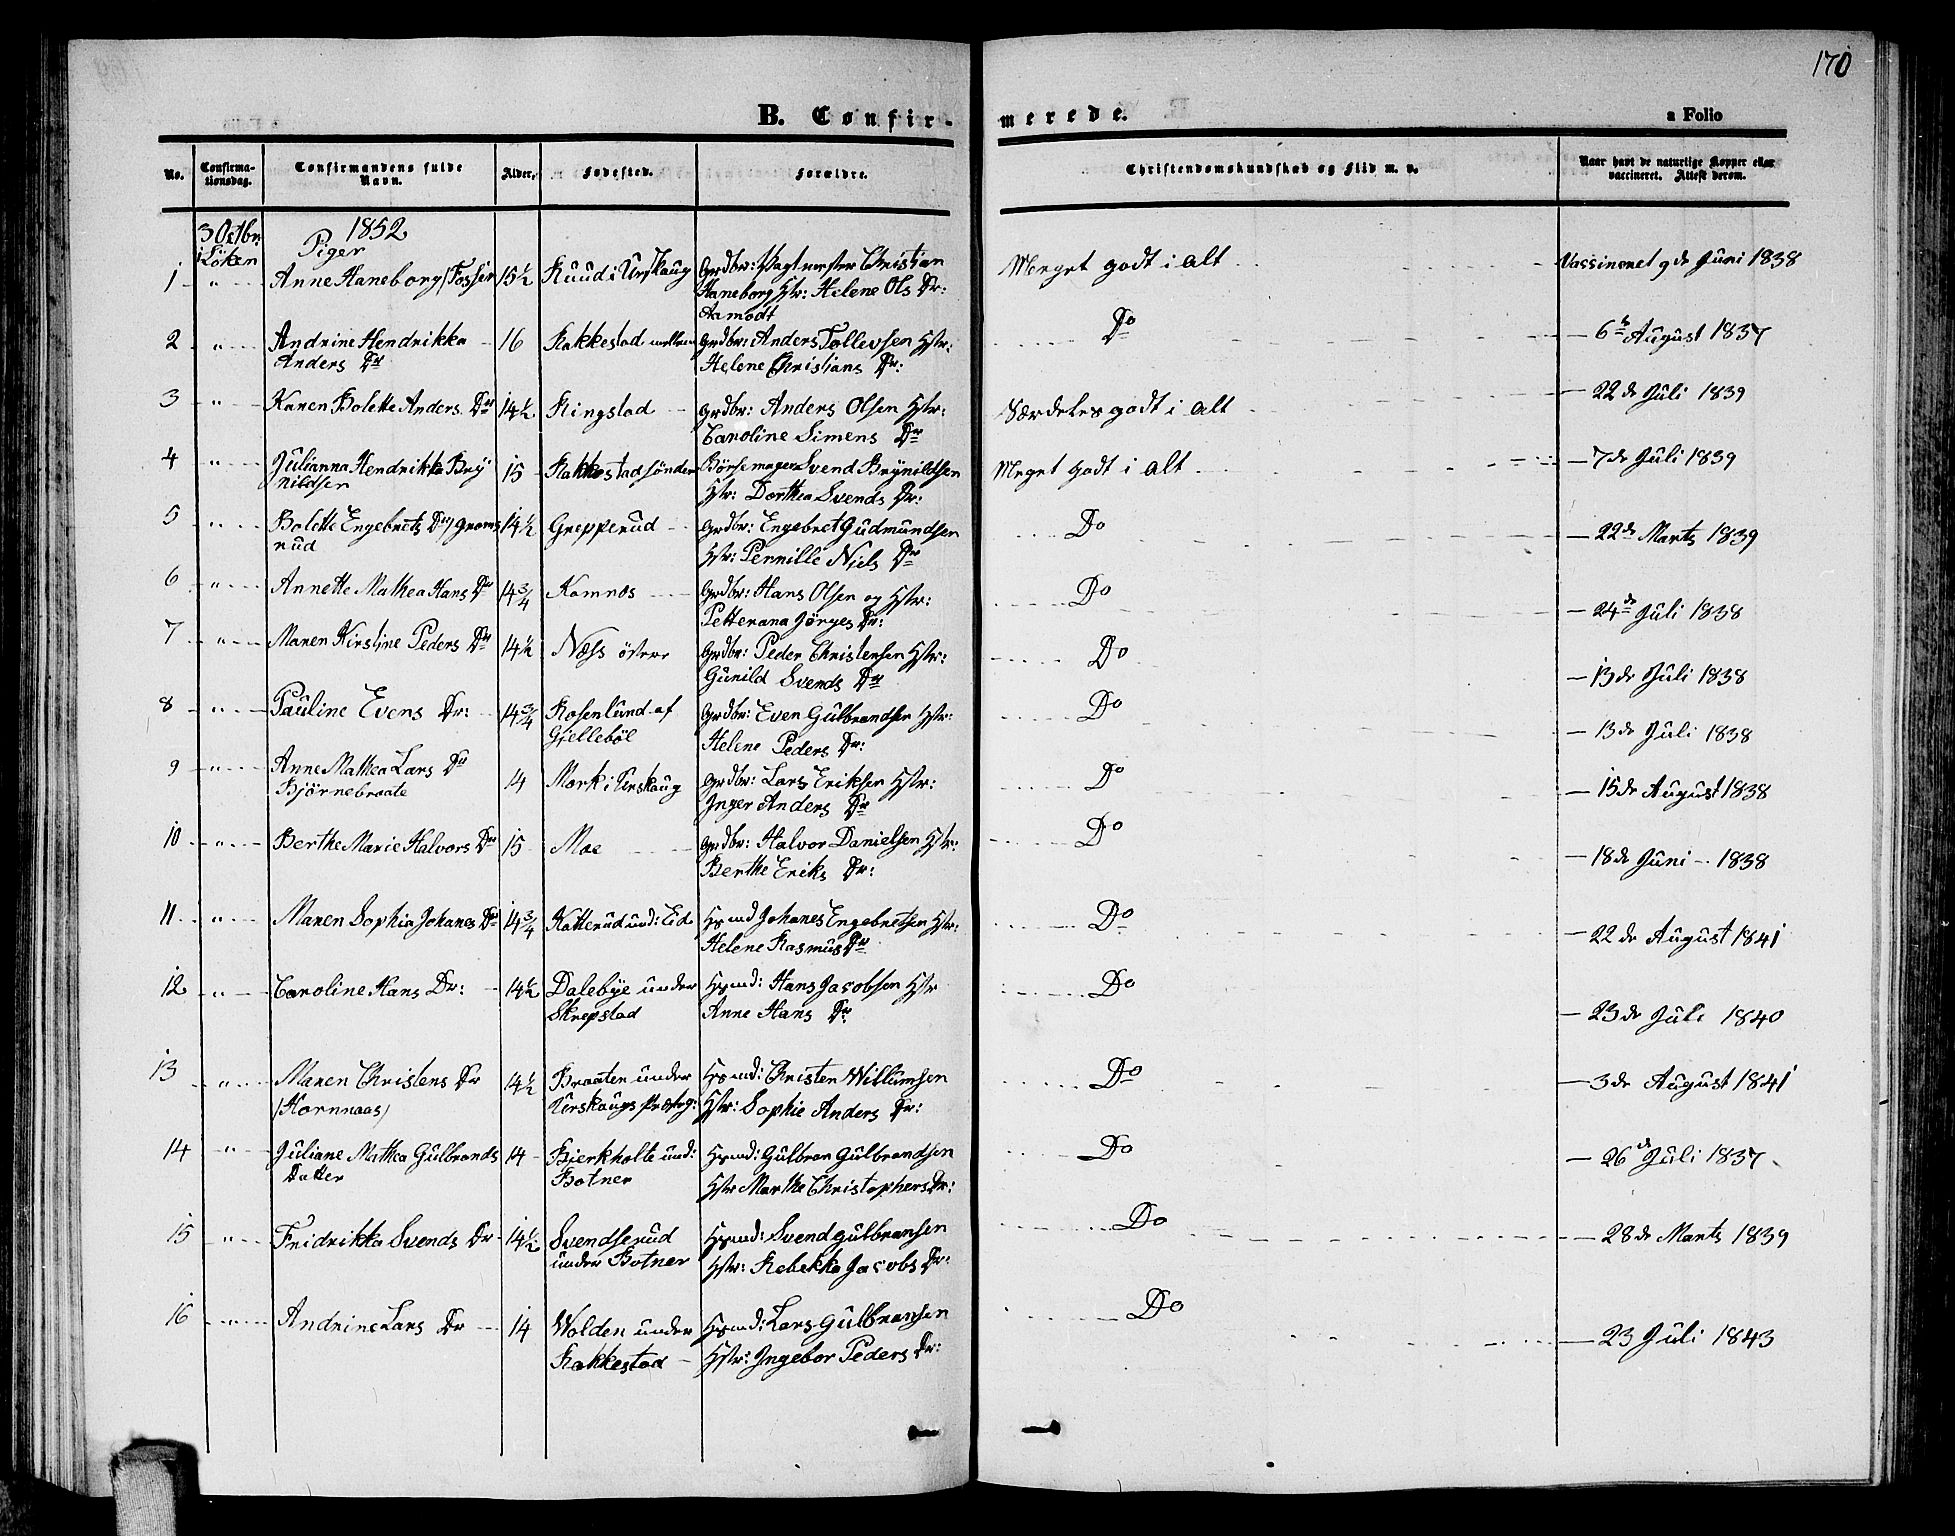 170
B. Confir-
merede.
a Folio
No.
Confirma-
tionsdag.
Confirmandens fulde
Navn.
Alder.
Fødested.
Forældre.
Christendomskundskab og Flid m. v.
Naar havt de naturlige Kopper eller
vaccineret. Attest derom.
3 Octbr.
i Löken
1852
Piger
1 " Anne Haneborg /Fosser 15½ Ruud i Urskaug Grdbr: Vagtmester Christian
Haneborg Hstr: Helene Ols Dr:
Aamodt
Meget godt i alt Vassineret 9de Juni 1838
2 " Andrine Hendrikka 16 Rakkestad mellem Grdbr: Anders Tollevsen Hstr:
Anders Dr Helene Christians Dr:
Do 6te August 1837
3 " Karen Bolette Anders Dr 14½ Ringstad Grdbr: Anders Olsen Hstr:
Caroline Simens Dr
Særdeles godt i alt 22de Juli 1839
4 " Julianna Hendrikka Bry 15 Rakkestad sönder Börsemager Svend Brynildsen
nildsen Hstr: Dorthea Svends Dr:
Meget godt i alt 7de Juli 1839
5 " Bolette Engebrets Dr / Groms 14½ Grepperud Grdbr: Engebret Gudmundsen
rud Hstr: Pernille Niels Dr
Do 22de Marts 1839
6 " Annette Mathea Hans Dr 14¾ Komnes Grdbr: Hans Olsen og Hstr:
Petterana Jörges Dr:
Do 24de Juli 1838
7 " Maren Kirstine Peders Dr 14½ Næss östere Grdbr: Peder Christensen Hstr:
Gunild Svends Dr
Do 13de Juli 1838
8 " Pauline Evens Dr: 14¾ Rosenlund af Grdbr: Even Gulbrandsen Hstr:
Gjelleböl Helene Peders Dr:
Do 13de Juli 1838
9 " Anne Mathea Lars Dr 14 Mork i Urskaug Grdbr: Lars Eriksen Hstr:
Björnebraate Inger Anders Dr
Do 15de August 1838
10 " Berthe Marie Halvors Dr 15 Moe Grdbr: Halvor Danielsen Hstr:
Berthe Eriks Dr:
Do 18de Juni 1838
11 " Maren Sophia Johanes Dr 14¾ Katterud und: Eid Husmd Johanes Engebretsen Hstr:
Helene Rasmus Dr
Do 22de August 1841
12 " Caroline Hans Dr: 14½ Dalebye under Husmd: Hans Jacobsen Hstr
Skrepstad Anne Hans Dr
Do 23de Juli 1840
13 " Maren Christens Dr 14½ Braaten under Husmd: Christen Willumsen
/Hornnaas/ Urskaugs Præstg: Hstr: Sophie Anders Dr:
Do 3de August 1841
14 " Juliane Mathea Gulbrands 14 Bierkholte und: Husmd: Gulbran Gulbrandsen
Datter Botner Hstr Marthe Christophers Dr:
Do 26de Juli 1837
15 " Fridrikka Svends Dr 14½ Svendserud Husmd: Svend Gulbransen
under Botner Hstr: Rebekka Jacobs Dr:
Do 28de Marts 1839
16 " Andrine Lars Dr 14 Wolden under Husmd: Lars Gulbransen
Rakkestad Hstr: Ingebor Peders Dr:
Do 23 Juli 1843